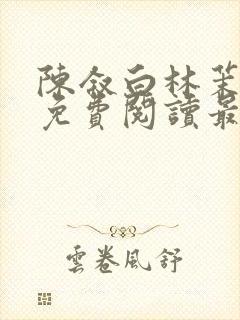 陳敘白林茉
免費閱讀最
雲卷風舒